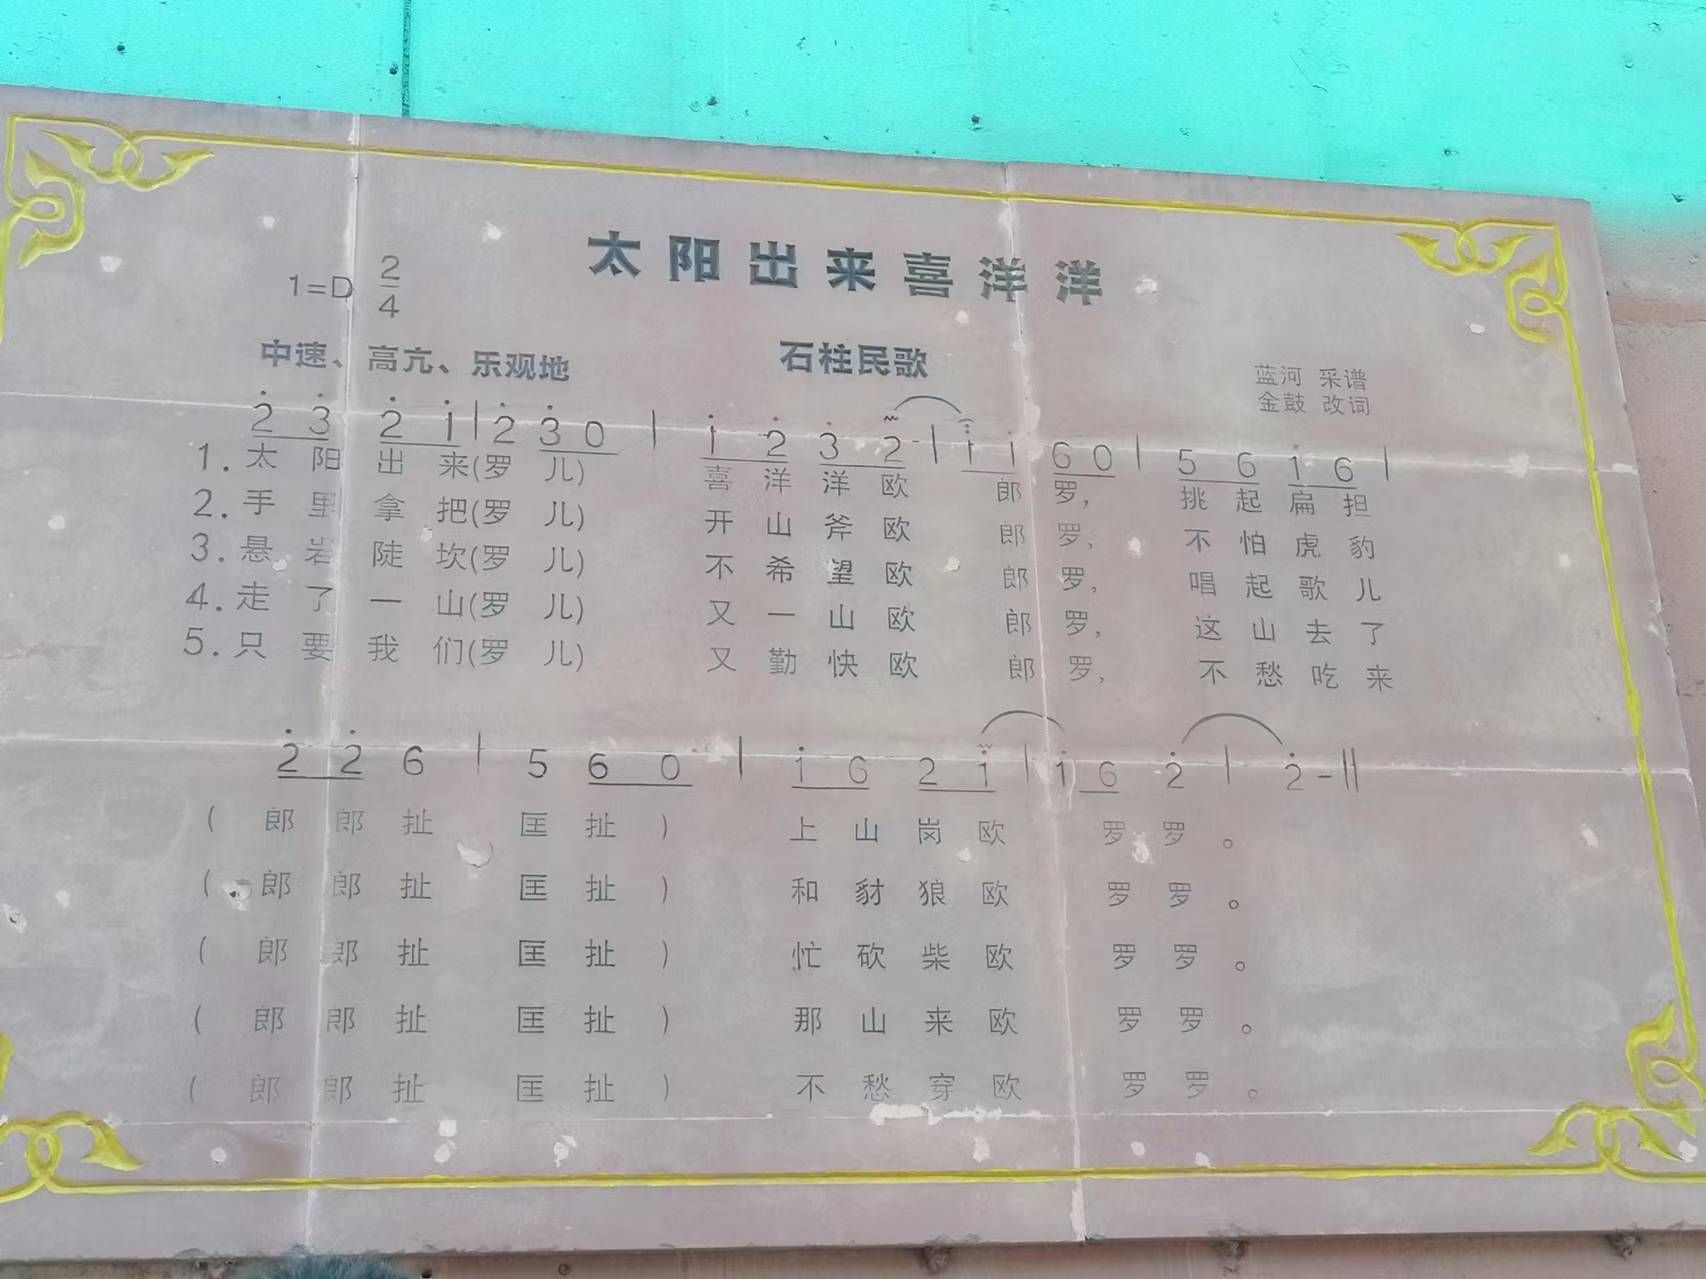 太阳出来喜洋洋
1=D 2/4
中速、高亢、乐观地 石柱民歌
蓝河 采谱
金鼓 改词
2̇ 3̇ 2̇ 1̇ | 2̇ 3̇ 0 | 1̇ 2̇ 3̇ 2̇ | 1̇ 1̇ 6 0 | 5 6 1̇ 6 |
1.太阳出来(罗儿) 喜洋洋欧 郎罗, 挑起扁担
2.手里拿把(罗儿) 开山斧欧 郎罗, 不怕虎豹
3.悬岩陡坎(罗儿) 不希望欧 郎罗, 唱起歌儿
4.走了一山(罗儿) 又一山欧 郎罗, 这山去了
5.只要我们(罗儿) 又勤快欧 郎罗, 不愁吃来
2̇ 2̇ 6 | 5 6 0 | 1̇ 6 2 1̇ | 1̇ 6 2̇ | 2̇ - ‖
(郎郎扯 匡扯) 上山岗欧 罗罗。
(郎郎扯 匡扯) 和豺狼欧 罗罗。
(郎郎扯 匡扯) 忙砍柴欧 罗罗。
(郎郎扯 匡扯) 那山来欧 罗罗。
(郎郎扯 匡扯) 不愁穿欧 罗罗。